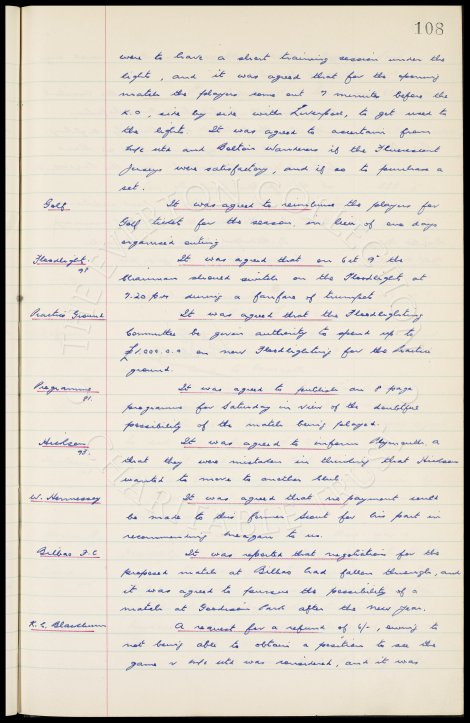 108
were to have a short training session under the
lights, and it was agreed that for the opening
match the players come out 7 minutes before the
K.O, side by side with Liverpool, to get used to
the lights. It was agreed to ascertain from
M/c Utd and Bolton Wanderers if the Fluorescent
Jerseys were satisfactory, and if so to purchase a
set.
Golf. It was agreed to reimburse the players for
Golf ticket for the season, in lieu of one days
organised outing
Floodlight. It was agreed that on Oct 9th the
91 Chairman should switch on the Floodlight at
7.20 p.m during a fanfare of trumpets
Practice Ground It was agreed that the Floodlighting
Committee be given authority to spend up to
£1,000.0.0 on new Floodlighting for the Practice
ground.
Programme It was agreed to publish an 8 page
91. programme for Saturday in view of the doubtful
possibility of the match being played.
Hickson It was agreed to inform Plymouth A
98. that they were mistaken in thinking that Hickson
wanted to move to another club.
W. Hennessey It was agreed that no payment could
be made to this former Scout for his part in
recommending Meagan to us.
Bilbao F.C It was reported that negotiations for the
proposed match at Bilbao had fallen through, and
it was agreed to pursue the possibility of a
match at Goodison Park after the New Year.
A request for a refund of 6/-, owing to
not being able to obtain a position to see the
game v M/c Utd was considered, and it was
THE EVERTON COLLECTION
CHARITABLE